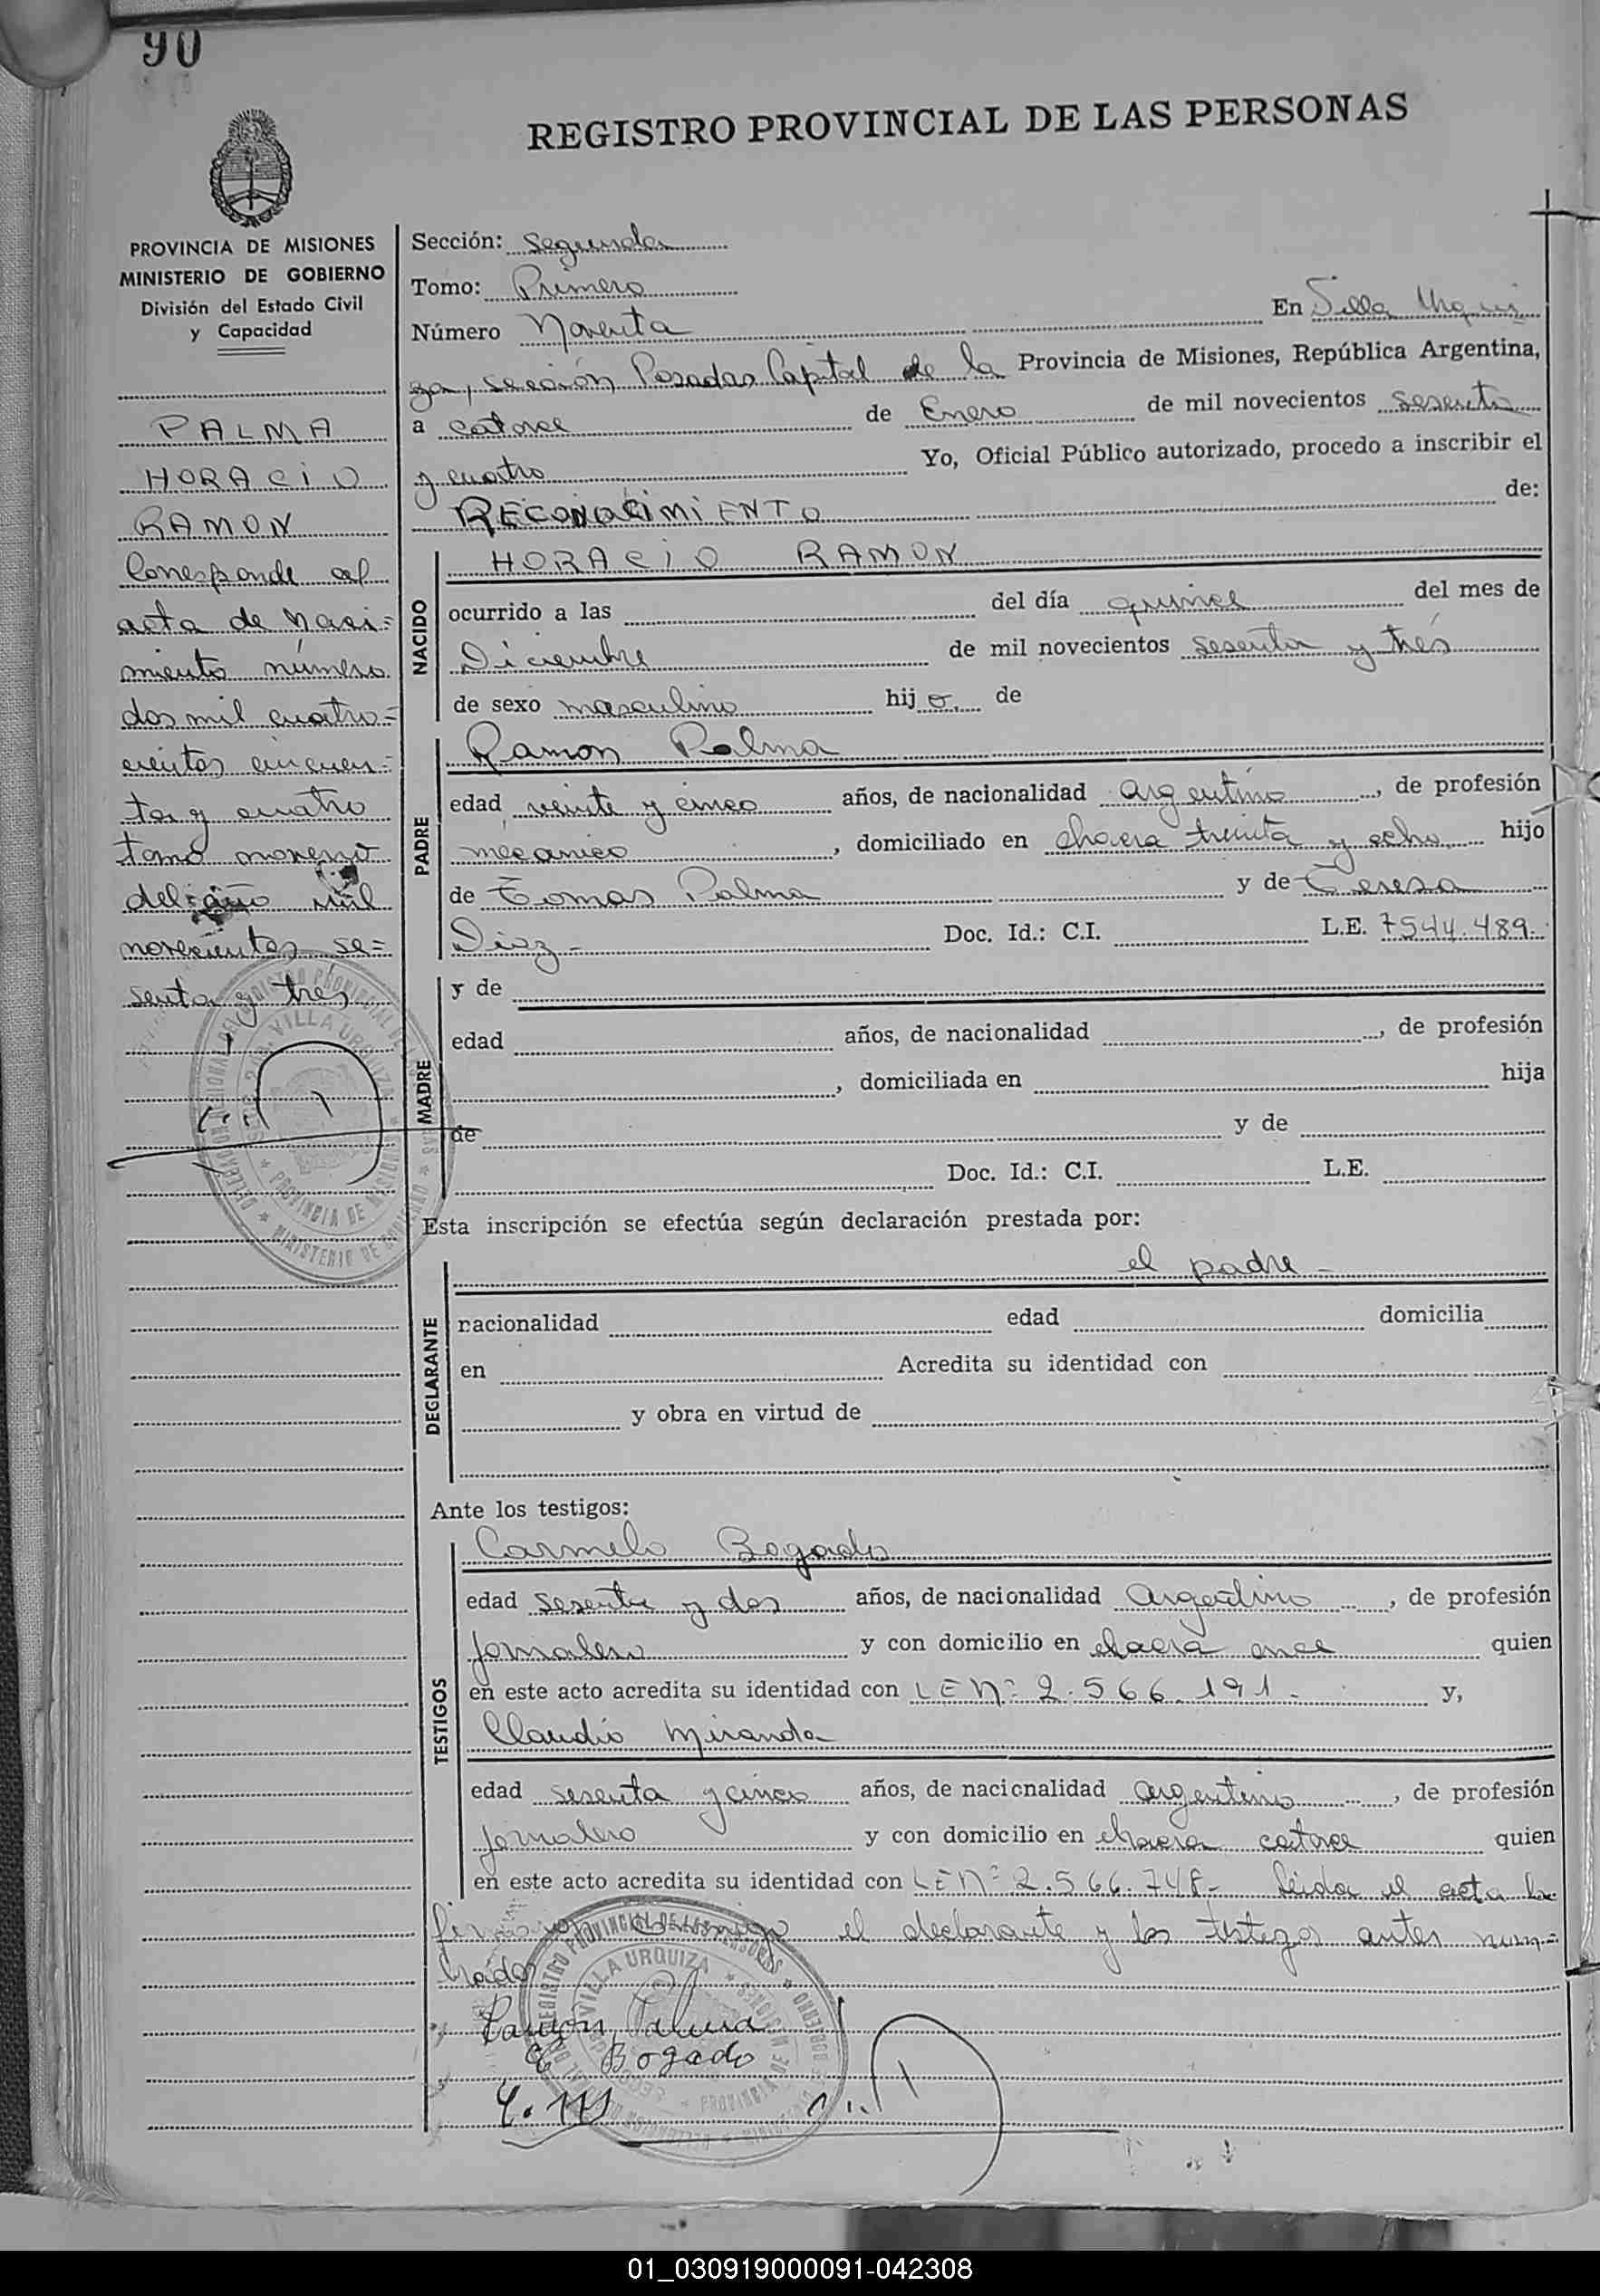 90
REGISTRO PROVINCIAL DE LAS PERSONAS
PROVINCIA DE MISIONES
MINISTERIO DE GOBIERNO
División del Estado Civil
y Capacidad
PALMA
HORACIO
RAMON
Corresponde al
acta de naci=
miento número
dos mil cuatro=
cientos cincuen=
ta y cuatro
tomo noveno
del año mil
novecientos se=
senta y tres
Sección: Segunda
Tomo: Primero
Número Noventa En Villa Urqui
za, sección Posadas Capital de la Provincia de Misiones, República Argentina,
a catorce de Enero de mil novecientos sesenta
y cuatro Yo, Oficial Público autorizado, procedo a inscribir el
RECONOCIMIENTO de:
NACIDO
HORACIO RAMON
ocurrido a las del día quince del mes de
Diciembre de mil novecientos sesenta y trés
de sexo masculino hijo de
PADRE
Ramon Palma
edad veinte y cinco años, de nacionalidad argentino, de profesión
mecánico, domiciliado en chacra treinta y ocho, hijo
de Tomas Palma y de Teresa
Diaz - Doc. Id.: C.I. L.E. 7544.489.
MADRE
y de
edad años, de nacionalidad , de profesión
, domiciliada en hija
de y de
Doc. Id.: C.I. L.E.
Esta inscripción se efectúa según declaración prestada por:
DECLARANTE
el padre -
nacionalidad edad domicilia
en Acredita su identidad con
y obra en virtud de
Ante los testigos:
TESTIGOS
Carmelo Bogado
edad sesenta y dos años, de nacionalidad argentino, de profesión
jornalero y con domicilio en chacra once quien
en este acto acredita su identidad con L E Nº 2.566.191.- y,
Claudio Miranda
edad sesenta y cinco años, de nacionalidad argentino, de profesión
jornalero y con domicilio en chacra catorce quien
en este acto acredita su identidad con L E Nº 2.566.748.- Leida el acta la
firman conmigo el declarante y los testigos antes nom=
brados
Ramón Palma
C Bogado
VILLA URQUIZA
PROVINCIA DE MISIONES
MINISTERIO DE GOBIERNO
VILLA URQUIZA
01_030919000091-042308